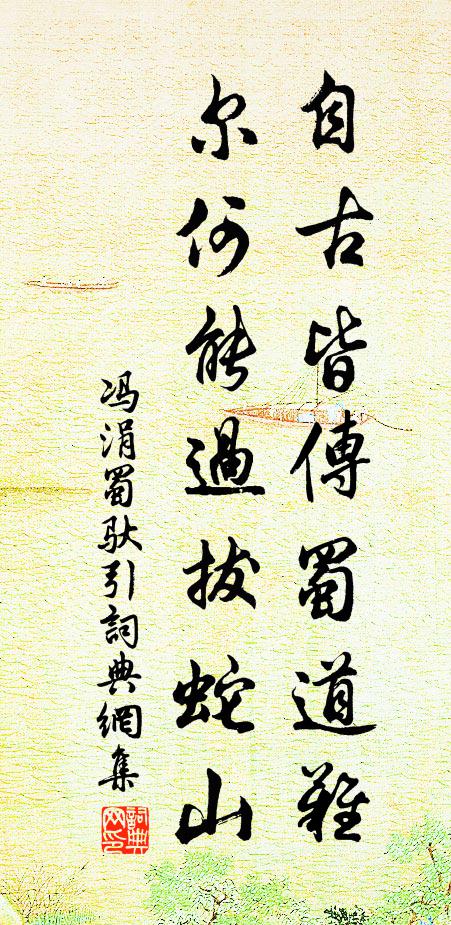 自古皆傳蜀道難
尔何能過拔蛇山
冯涓蜀馱引詞典網集
詞典
网印